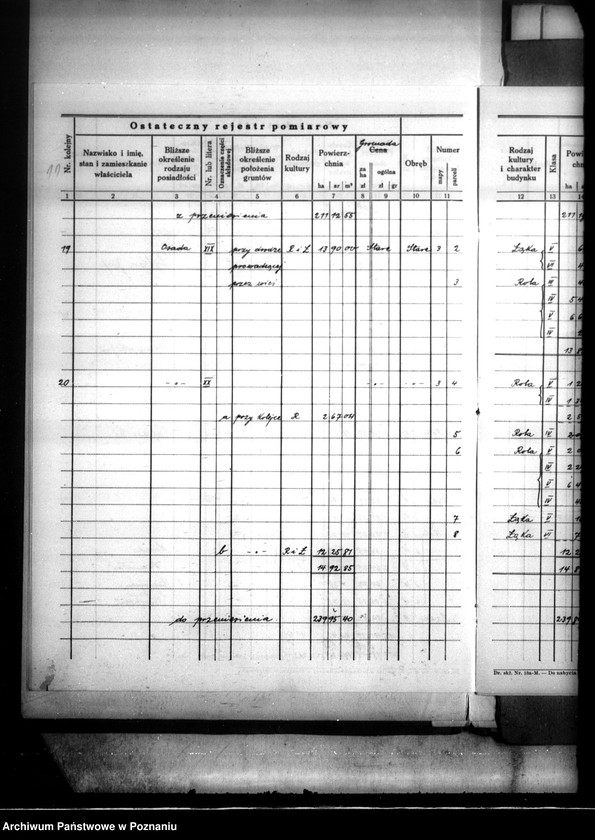 Ostateczny rejestr pomiarowy
Nr. kolejny
Nazwisko i imię, stan i zamieszkanie właściciela
Bliższe określenie rodzaju posiadłości
Nr. lub litera
Oznaczenie części składowej
Bliższe określenie położenia gruntów
Rodzaj kultury
Powierzchnia
ha ar m²
Gromada
Cena
za ha zł
ogólna
zł gr
Obręb
Numer
mapy parceli
Rodzaj kultury i charakter budynku
Klasa
1 2 3 4 5 6 7 8 9 10 11 12 13 14
z przeniesienia 211 12 55 211
19 Osada XIX przy drodze R i Ł 13 90 00 Stare Stare 3 2 Łąka V 6
prowadzącej VI 4
przez wieś 3 Rola III 4
IV 5 4
V 6 6
IV
13 8
20 -"- XX -"- -"- 3 4 Rola V 1 2
IV 1
a przy kolejce R 2 67 04 2
5 Rola IV
6 Rola V 2
IV 2 2
V 6 4
IV 4
7 Łąka V
8 Łąka VI 7
b -"- R i Ł 12 25 81 12 2
14 92 85 14 8
do przeniesienia 239 95 40 239
Dr. skł. Nr.
Archiwum Państwowe w Poznaniu